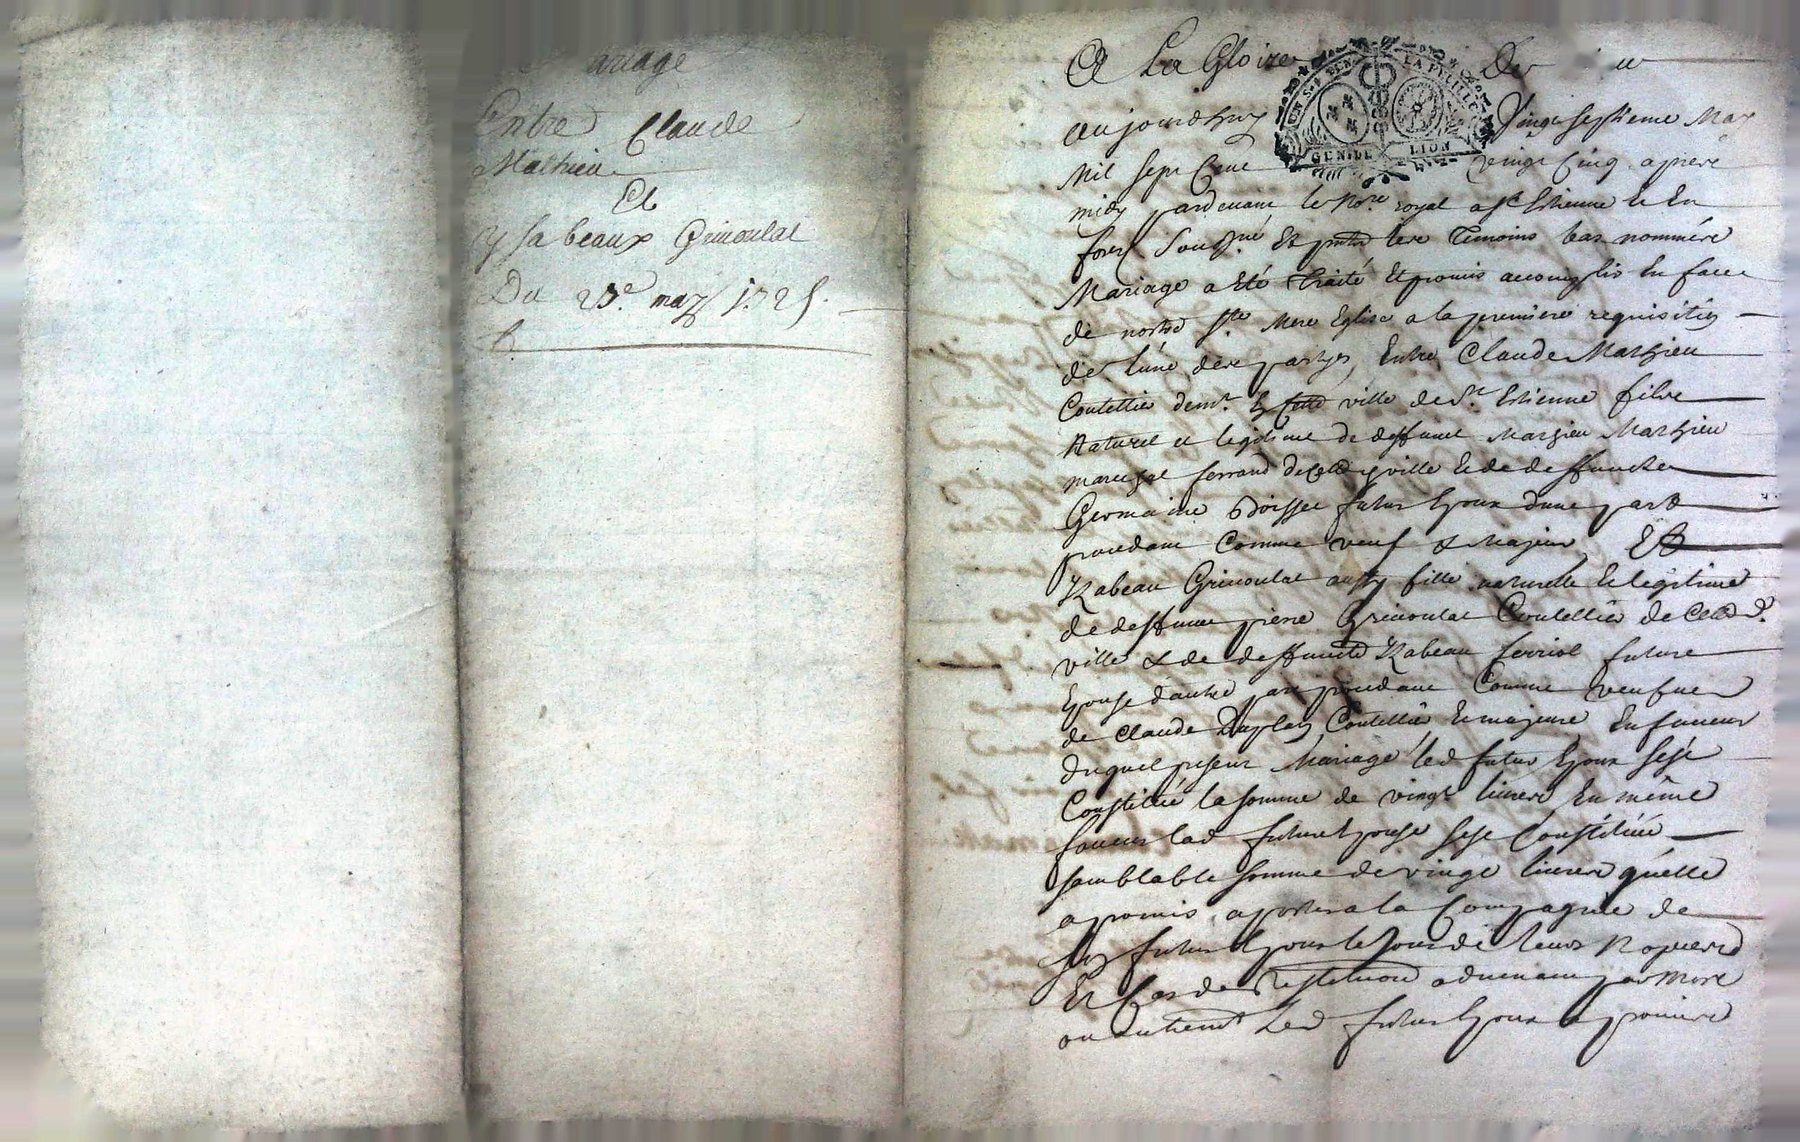 ariage
Entre Claude
Mathieu
Et
ysabeaux Grinoulat
Du 27e. may 1725.
A La Gloire De
UN S. 4 DEN. LA FEUILLE
GEN. DE LION
aujourdhuy Vingt septieme May
Mil sept Cent vingt Cinq apres
midy pardevant le Nore. royal a St Estienne le En
forez sousne Et pnts les Temoins bas nommés
Mariage a eté Traité Et promis accomplir En face
de nostre Ste Mere Eglise a la premiere requisition
de lune des partyes, Entre Claude Mathieu
Coutellier demt. En ville de St. Estienne fils
Naturel et legitime de deffunt Mathieu Mathieu
marechal ferrand de ville et de deffuncte
Germaine futur Epoux dune part
procedant Comme veuf & Majeur Et
Izabeau Grinoulat aussy fille naturelle Et legitime
de deffunct piere Grinoulat Coutellier de
ville & de deffuncte Izabeau ferriol future
Epouse dautre part procedant Comme veufue
de Claude Duplay Coutellier Et majeure En faueur
duquel present Mariage led futur Epoux sest
Constitué la somme de vingt liures En même
faueur lad future Epouse sest Constituée
samblable somme de vingt liures quelle
a promis aporter a la Compagnie de
futur Epoux le Jour de leurs
Et Cas de Restitution aduenant par Mort
ou autrement Led futur Epoux a promis